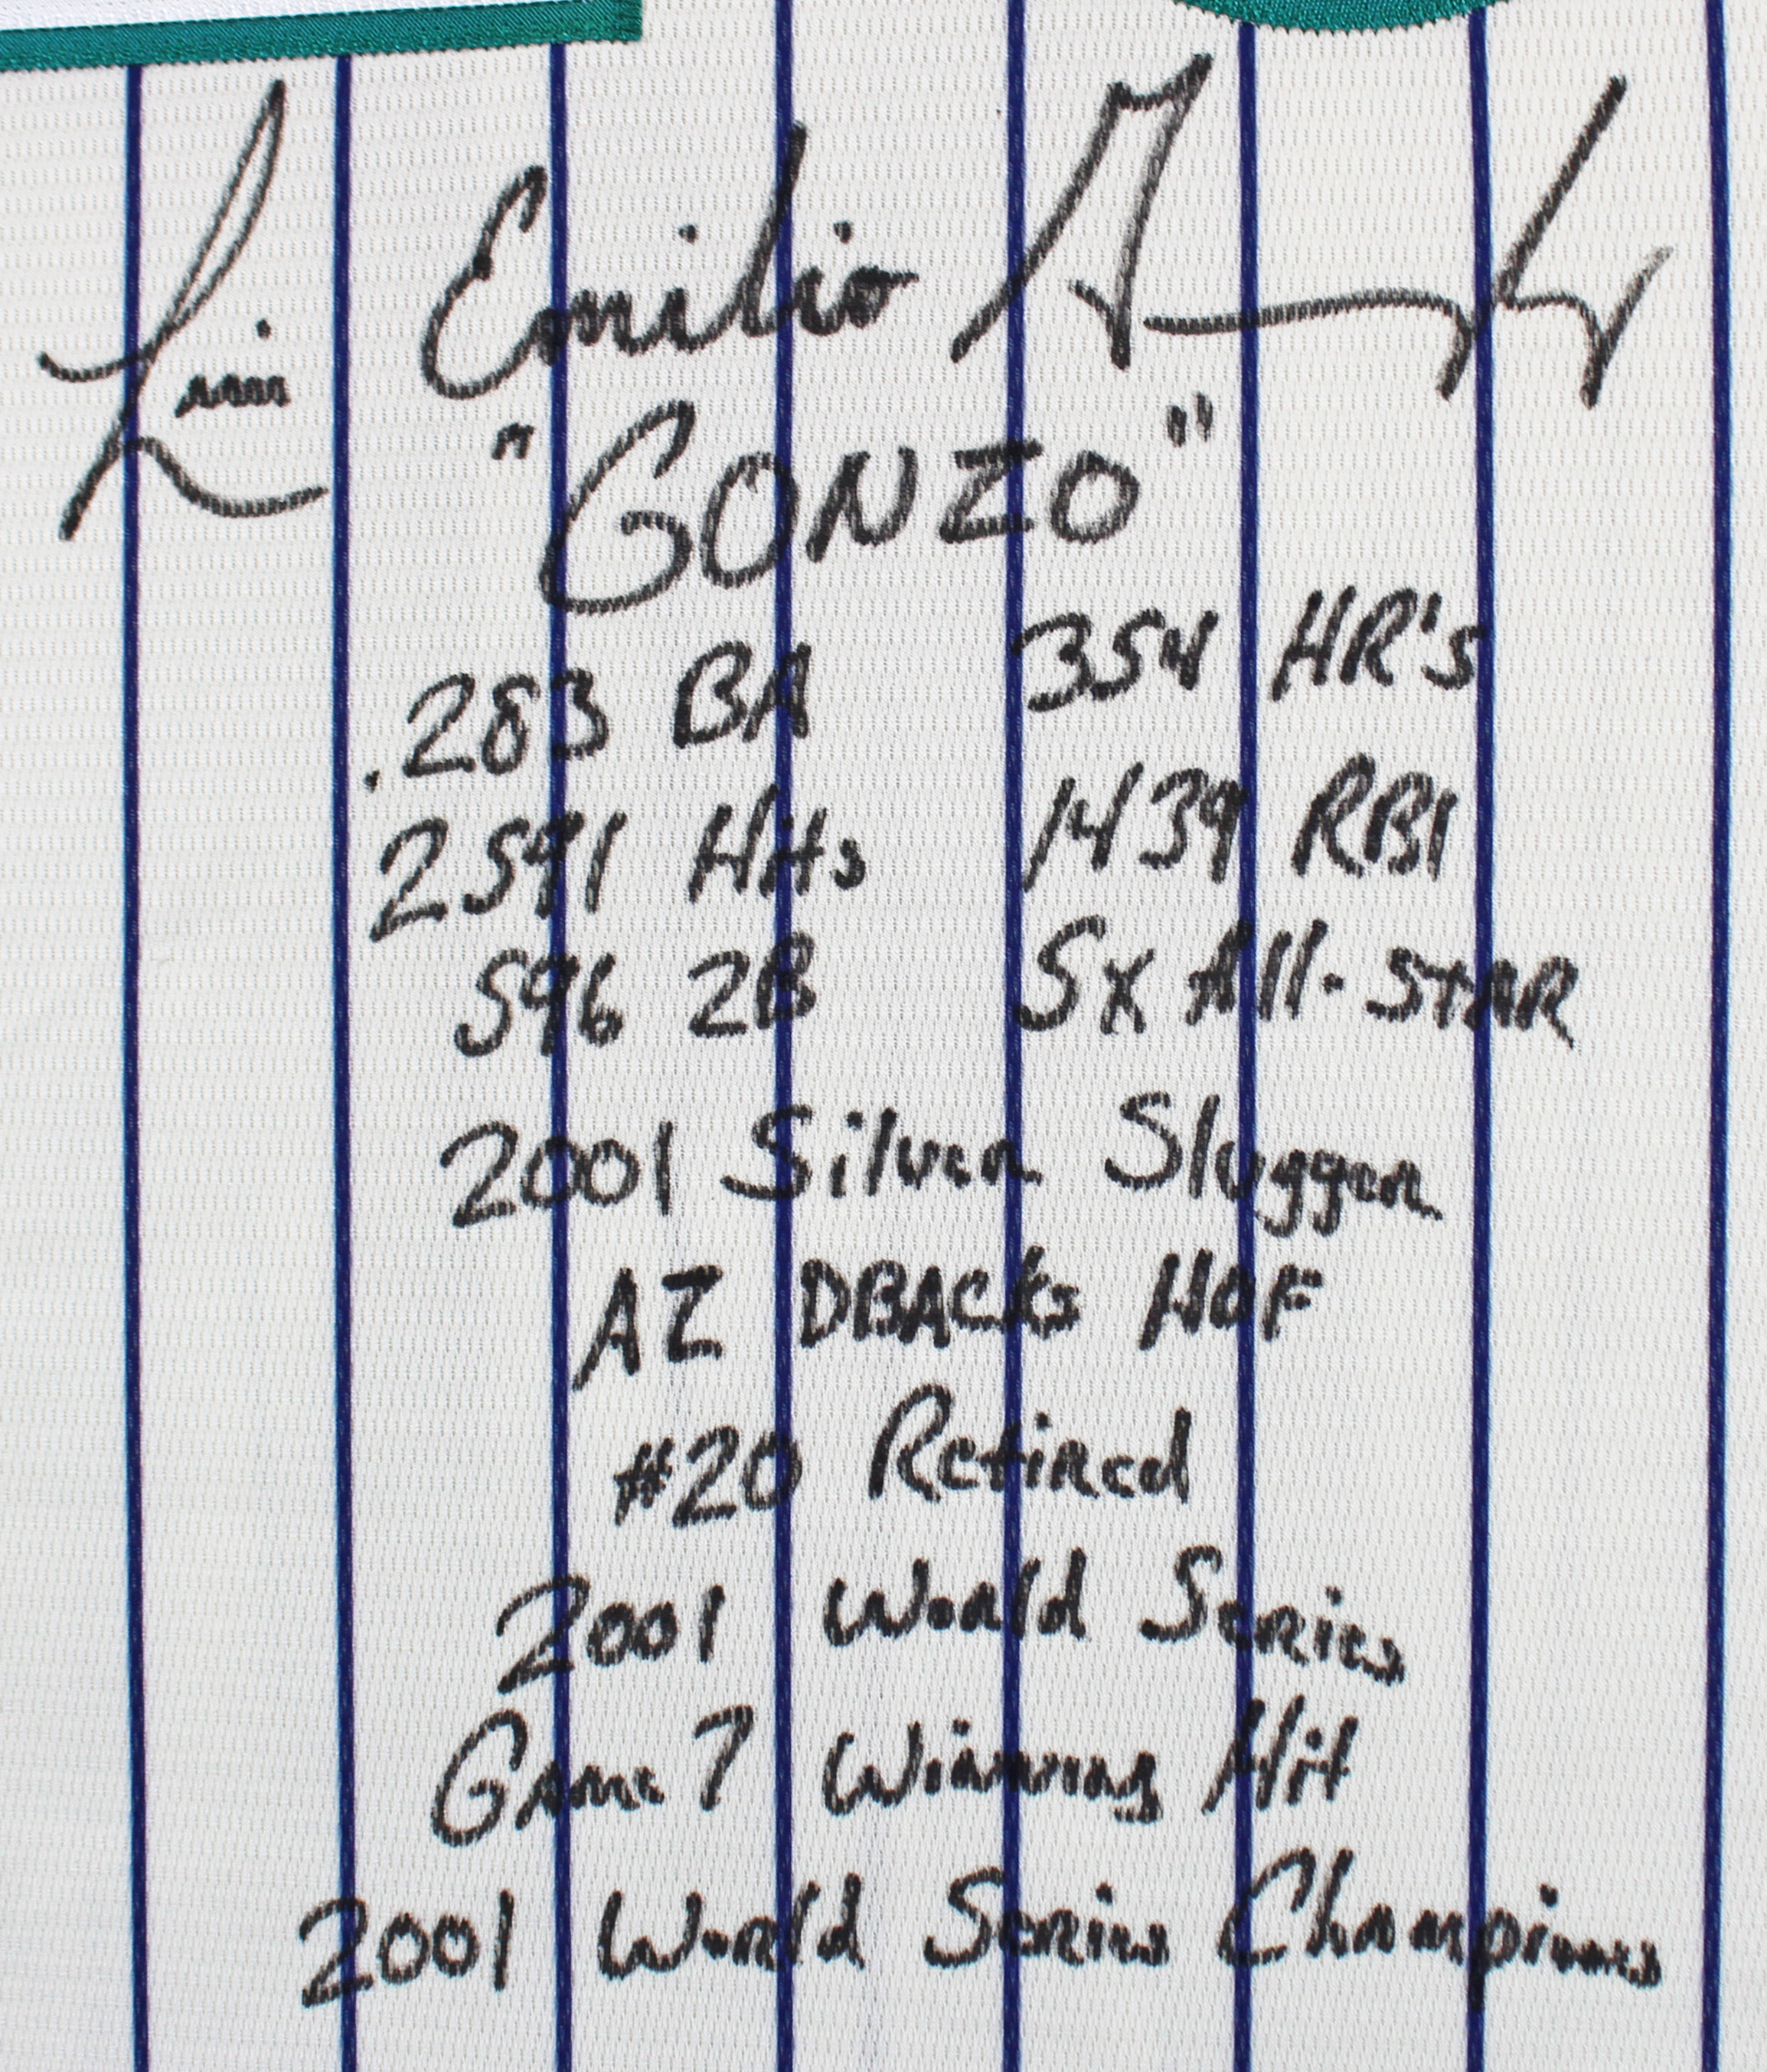 Luis Emilio Gonzalez
"GONZO"
.283 BA 354 HR's
2591 Hits 1439 RBI
596 2B 5x All-STAR
2001 Silver Slugger
AZ DBACKs HOF
#20 Retired
2001 World Series
Game 7 Winning Hit
2001 World Series Champions